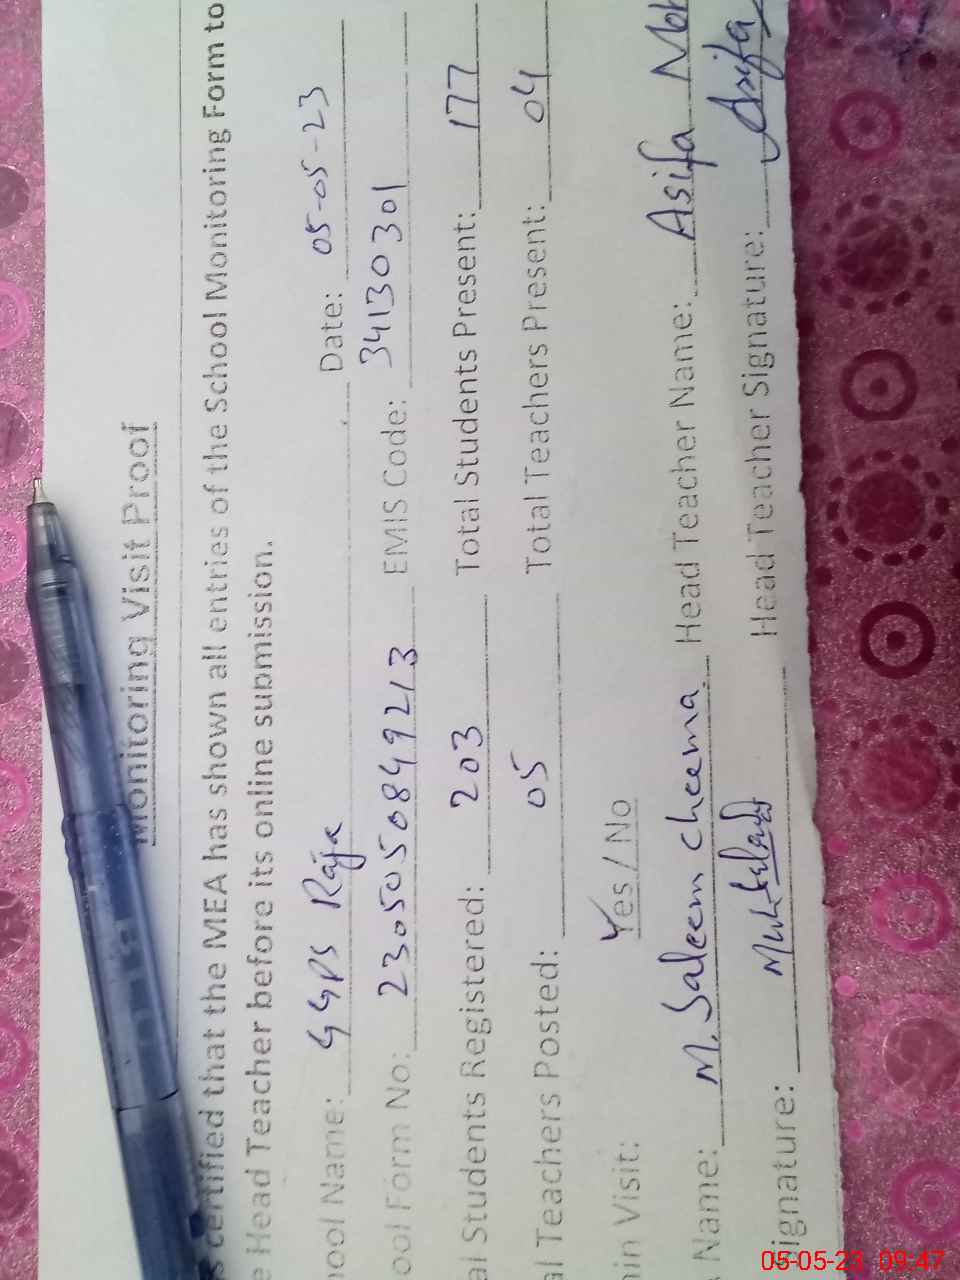 Monitoring Visit Proof
s certified that the MEA has shown all entries of the School Monitoring Form to
e Head Teacher before its online submission.
hool Name: GGPS Raja Date: 05-05-23
ool Form No: 23050508499213 EMIS Code: 34130301
al Students Registered: 203 Total Students Present: 177
al Teachers Posted: 05 Total Teachers Present: 04
in Visit: Yes / No
Name: M. Saleem cheema Head Teacher Name: Asifa
Signature: Head Teacher Signature: Asifa
05-05-23 09:47